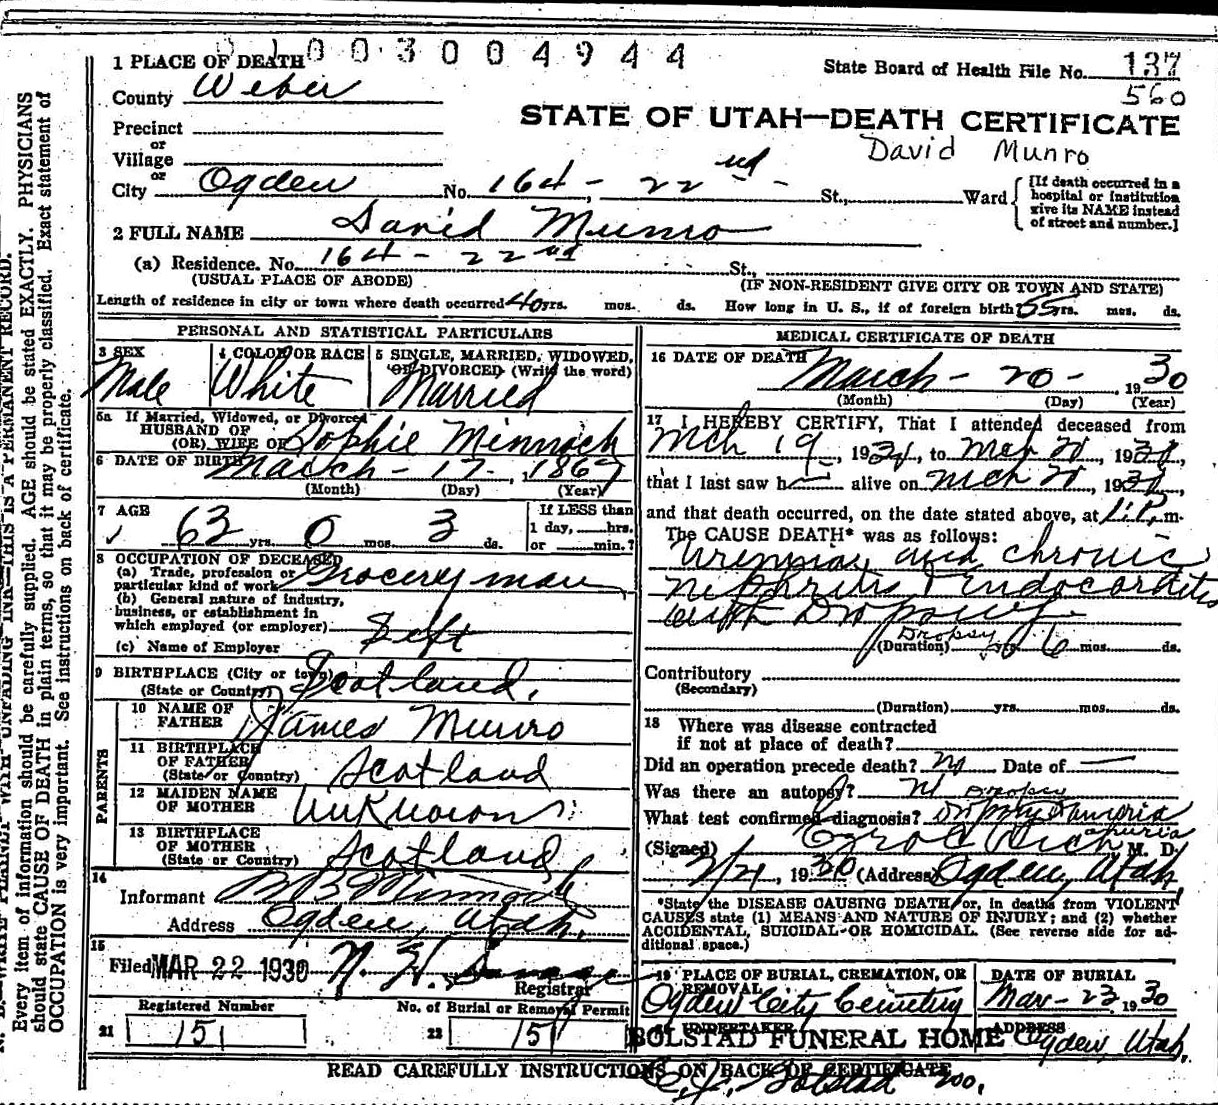 0 1 0 0 3 0 0 4 9 4 4
1 PLACE OF DEATH
State Board of Health File No. 137
560
County Weber
STATE OF UTAH—DEATH CERTIFICATE
Precinct
or
Village
David Munro
or
City Ogden No. 164 - 22nd - St., Ward
[If death occurred in a hospital or institution give its NAME instead of street and number.]
2 FULL NAME David Munro
(a) Residence. No. 164 - 22nd St.,
(USUAL PLACE OF ABODE) (IF NON-RESIDENT GIVE CITY OR TOWN AND STATE)
Length of residence in city or town where death occurred 40 yrs. mos. ds. How long in U. S., if of foreign birth? 55 yrs. mos. ds.
PERSONAL AND STATISTICAL PARTICULARS
3 SEX 4 COLOR OR RACE 5 SINGLE, MARRIED, WIDOWED, OR DIVORCED (Write the word)
Male White Married
5a If Married, Widowed, or Divorced
HUSBAND OF
(OR) WIFE OF Sophie Minnoch
6 DATE OF BIRTH March - 17 - , 1867
(Month) (Day) (Year)
7 AGE If LESS than
63 yrs. 0 mos. 3 ds. 1 day, hrs.
or min.?
8 OCCUPATION OF DECEASED
(a) Trade, profession or
particular kind of work Grocery man
(b) General nature of industry,
business, or establishment in
which employed (or employer)
(c) Name of Employer Self
9 BIRTHPLACE (City or town)
(State or Country) Scotland.
PARENTS
10 NAME OF
FATHER James Munro
11 BIRTHPLACE
OF FATHER
(State or Country) Scotland
12 MAIDEN NAME
OF MOTHER Unknown
13 BIRTHPLACE
OF MOTHER
(State or Country) Scotland
14
Informant
Address Ogden, Utah.
15
Filed MAR 22 1930
Registrar
Registered Number No. of Burial or Removal Permit
21 151 22 151
MEDICAL CERTIFICATE OF DEATH
16 DATE OF DEATH March - 20 - 1930
(Month) (Day) (Year)
17 I HEREBY CERTIFY, That I attended deceased from
Mch 19, 1930, to Mch 20, 1930,
that I last saw h alive on Mch 20, 1930,
and that death occurred, on the date stated above, at m.
The CAUSE DEATH* was as follows:
Uremia and chronic
Nephritis & Endocarditis
with Dropsy
Dropsy
(Duration) yrs. 6 mos. ds.
Contributory
(Secondary)
(Duration) yrs. mos. ds.
18 Where was disease contracted
if not at place of death?
Did an operation precede death? No Date of —
Was there an autopsy? No
Dropsy
What test confirmed diagnosis?
(Signed) Ezra C Rich M. D.
, 1930 (Address) Ogden, Utah,
*State the DISEASE CAUSING DEATH, or, in deaths from VIOLENT
CAUSES state (1) MEANS AND NATURE OF INJURY; and (2) whether
ACCIDENTAL, SUICIDAL OR HOMICIDAL. (See reverse side for ad-
ditional space.)
19 PLACE OF BURIAL, CREMATION, OR REMOVAL DATE OF BURIAL
Ogden City Cemetery Mar - 23, 1930
UNDERTAKER ADDRESS
BOLSTAD FUNERAL HOME Ogden, Utah.
READ CAREFULLY INSTRUCTIONS ON BACK OF CERTIFICATE
Bolstad 200.
N. B.—WRITE PLAINLY WITH UNFADING INK—THIS IS A PERMANENT RECORD.
Every item of information should be carefully supplied. AGE should be stated EXACTLY. PHYSICIANS
should state CAUSE OF DEATH in plain terms, so that it may be properly classified. Exact statement of
OCCUPATION is very important. See instructions on back of certificate.